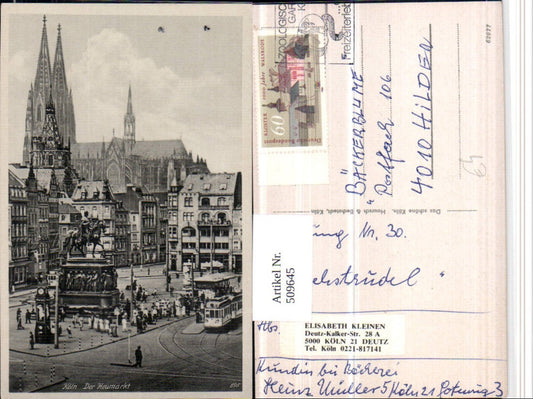 Köln. Der Heumarkt
ZOOLOGISCHER
GARTEN
Freizeiterlebnis
60
Deutsche Bundespost
KLOSTER 1000 Jahre WALSRODE
"BÄCKERBLUME"
Postfach 106
4010 HILDEN
Das schöne Köln, Hoursch & Bechstedt, Köln
Artikel Nr.
509645
Nr. 30.
chstrudel"
Abs.
ELISABETH KLEINEN
Deutz-Kalker-Str. 28 A
5000 KÖLN 21 DEUTZ
Tel. Köln 0221-817141
Kundin bei Bäckerei
Heinz Müller 5 Köln 21